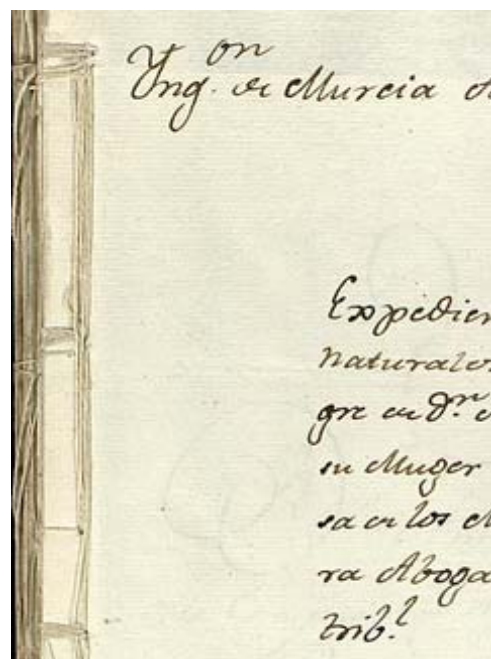 Ynq.on de Murcia
Expedien
naturales
gre de Dn.
su Muger
sa de los
ra Aboga
trib.l